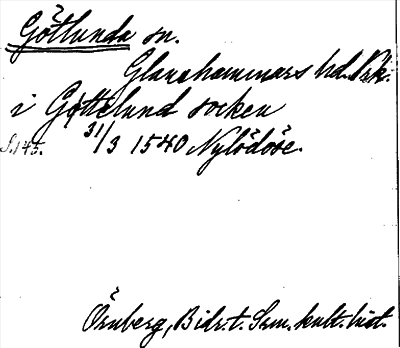 Götlunda sn.
Glanshammars hd. Örk.
i Gøttelund socken
S. 145. 31/3 1540 Nylödöse.
Örnberg, Bidr. t. Sv. kult. hist.